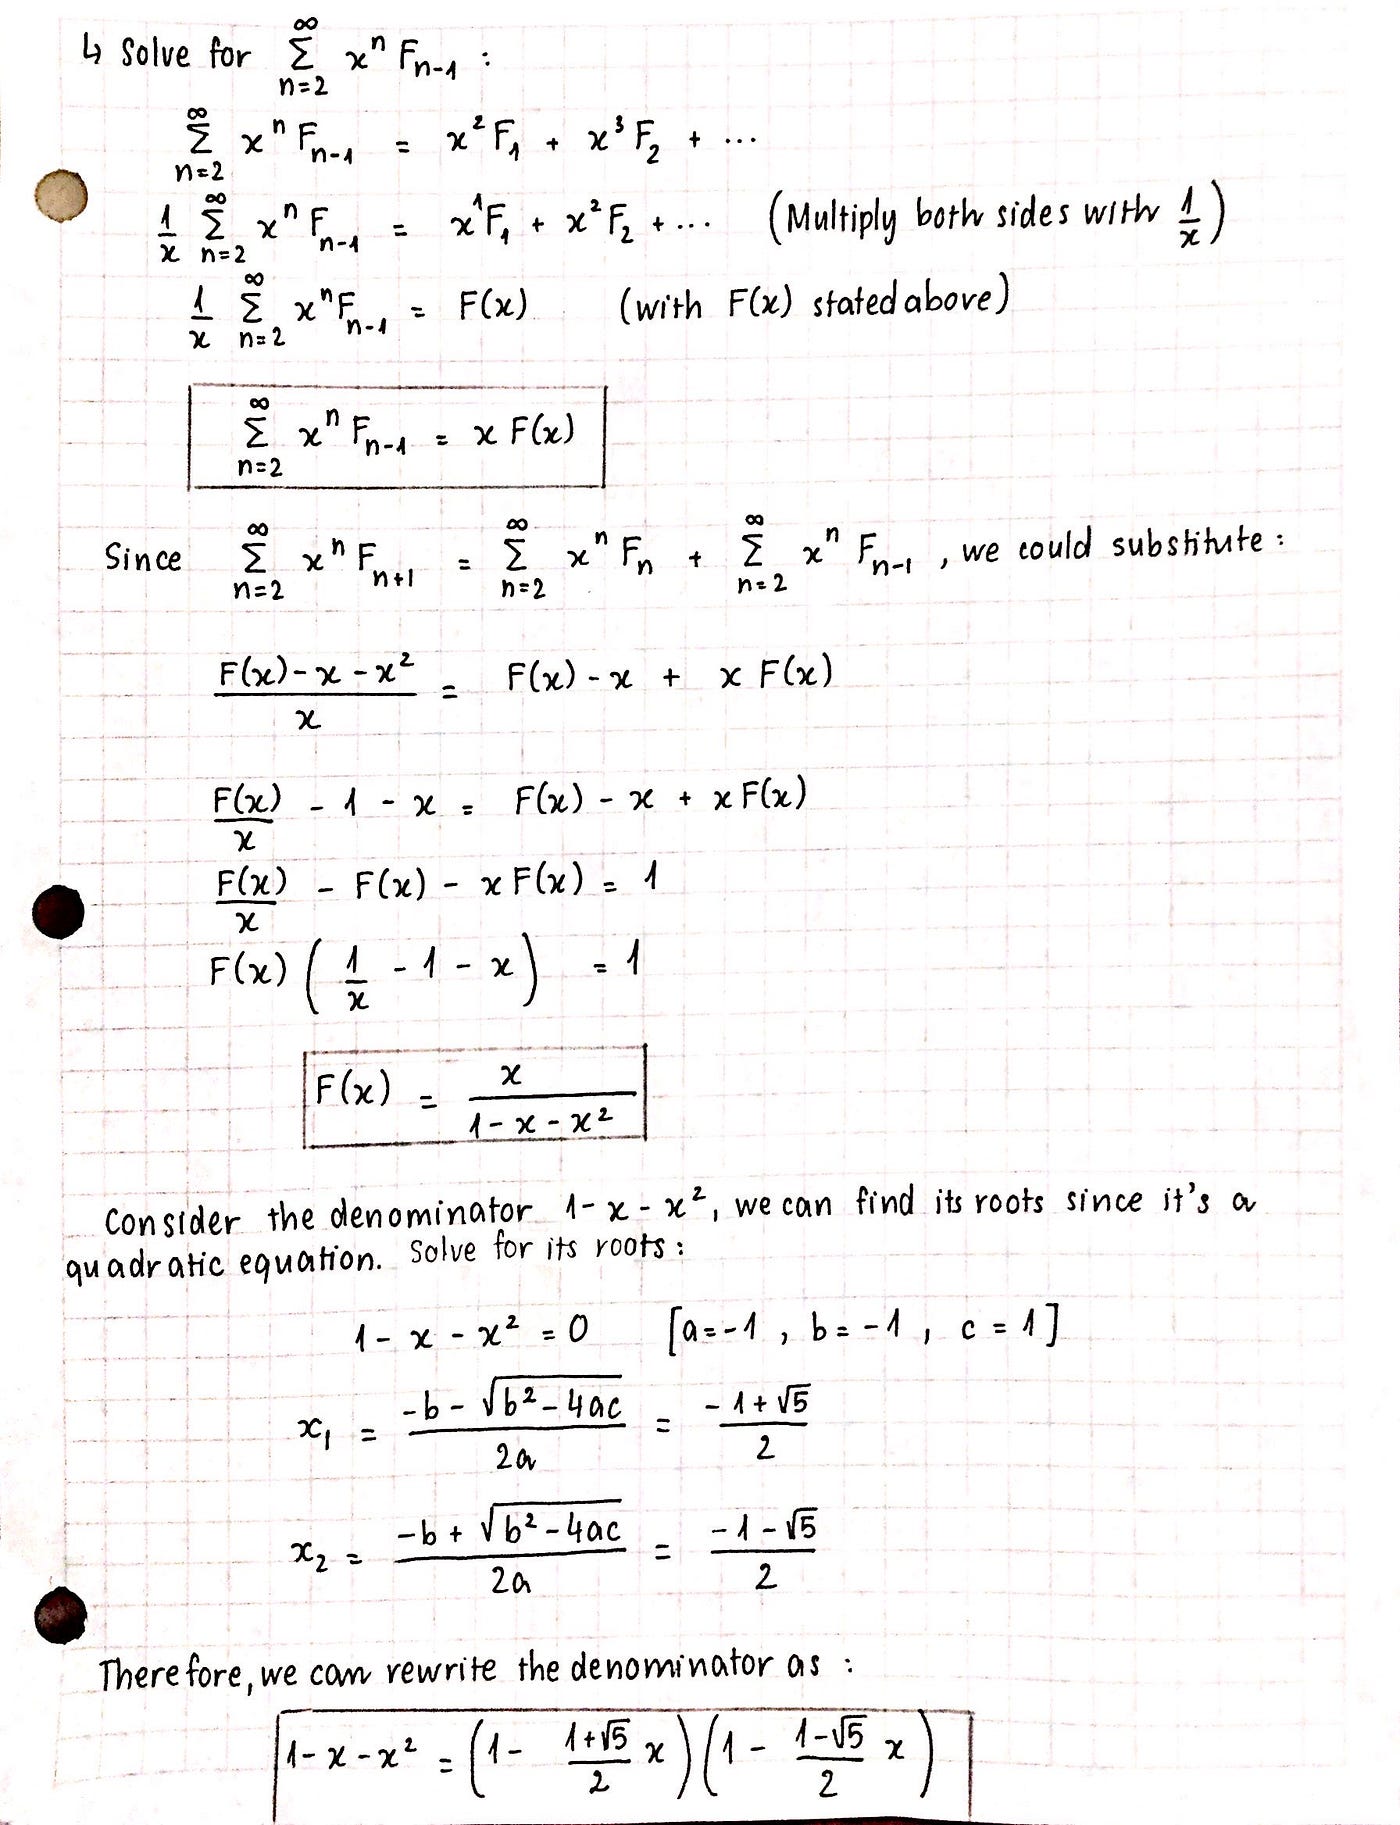 ↳ Solve for \sum_{n=2}^{∞} x^n F_{n-1} :
\sum_{n=2}^{∞} x^n F_{n-1} = x^2 F_1 + x^3 F_2 + ...
\frac{1}{x} \sum_{n=2}^{∞} x^n F_{n-1} = x^1 F_1 + x^2 F_2 + ... (Multiply both sides with \frac{1}{x})
\frac{1}{x} \sum_{n=2}^{∞} x^n F_{n-1} = F(x) (with F(x) stated above)
\sum_{n=2}^{∞} x^n F_{n-1} = x F(x)
Since \sum_{n=2}^{∞} x^n F_{n+1} = \sum_{n=2}^{∞} x^n F_n + \sum_{n=2}^{∞} x^n F_{n-1} , we could substitute :
\frac{F(x) - x - x^2}{x} = F(x) - x + x F(x)
\frac{F(x)}{x} - 1 - x = F(x) - x + x F(x)
\frac{F(x)}{x} - F(x) - x F(x) = 1
F(x) ( \frac{1}{x} - 1 - x ) = 1
F(x) = \frac{x}{1 - x - x^2}
Consider the denominator 1 - x - x^2, we can find its roots since it's a
quadratic equation. Solve for its roots :
1 - x - x^2 = 0 [a = -1 , b = -1 , c = 1]
x_1 = \frac{-b - \sqrt{b^2 - 4ac}}{2a} = \frac{-1 + \sqrt{5}}{2}
x_2 = \frac{-b + \sqrt{b^2 - 4ac}}{2a} = \frac{-1 - \sqrt{5}}{2}
Therefore, we can rewrite the denominator as :
1 - x - x^2 = ( 1 - \frac{1 + \sqrt{5}}{2} x ) ( 1 - \frac{1 - \sqrt{5}}{2} x )